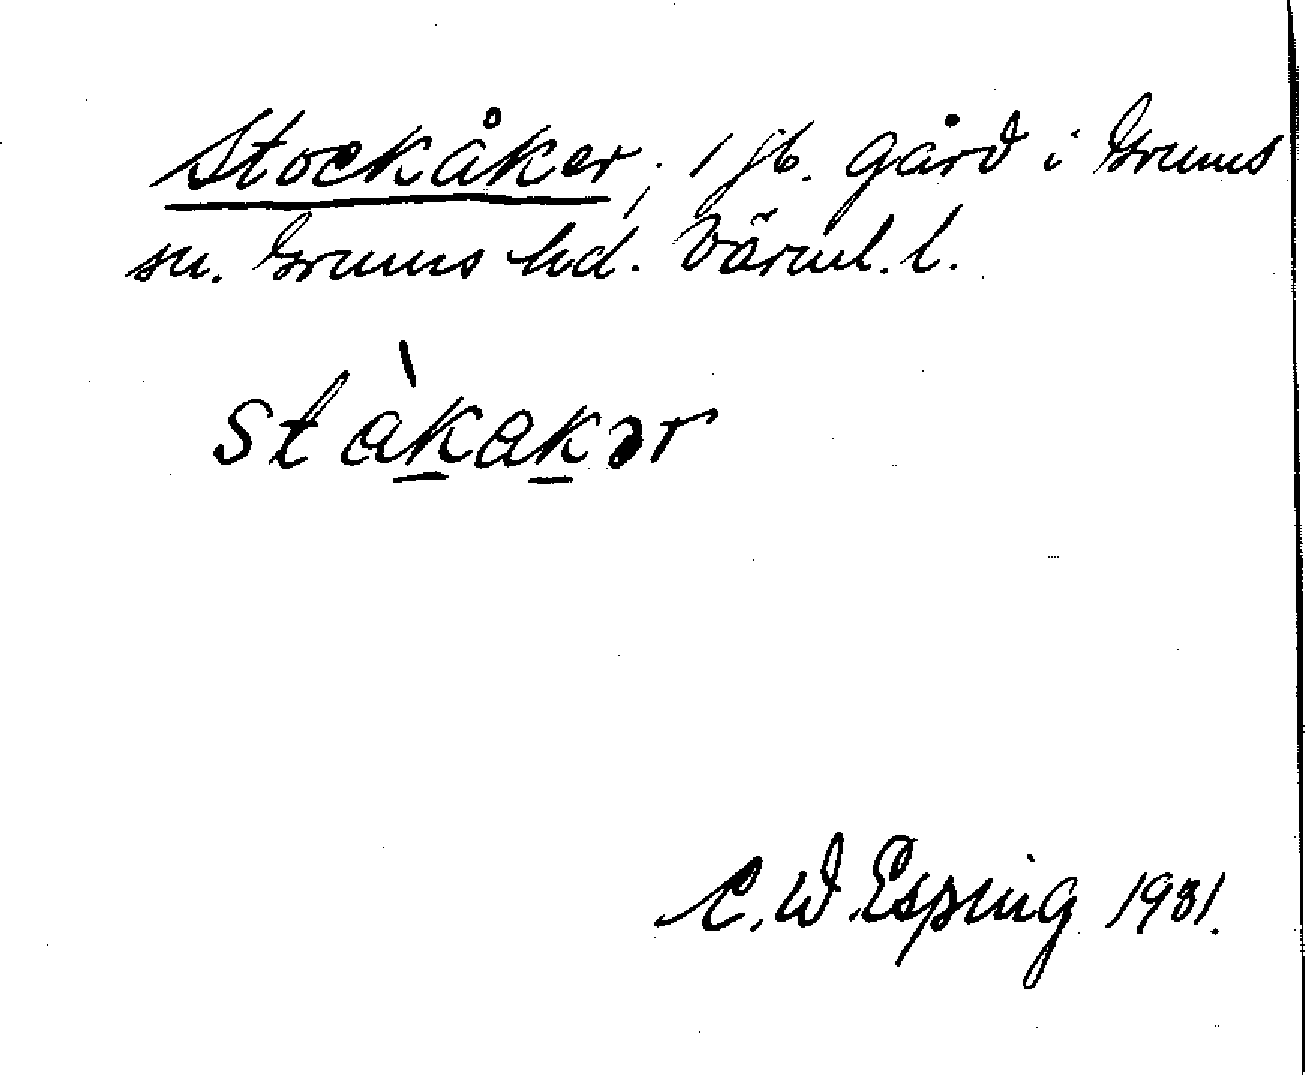 Stockåker; 1 jb. gård i Grums
sn. Grums hd. Värml. l.
stàkakər
C. W. Esping 1931.